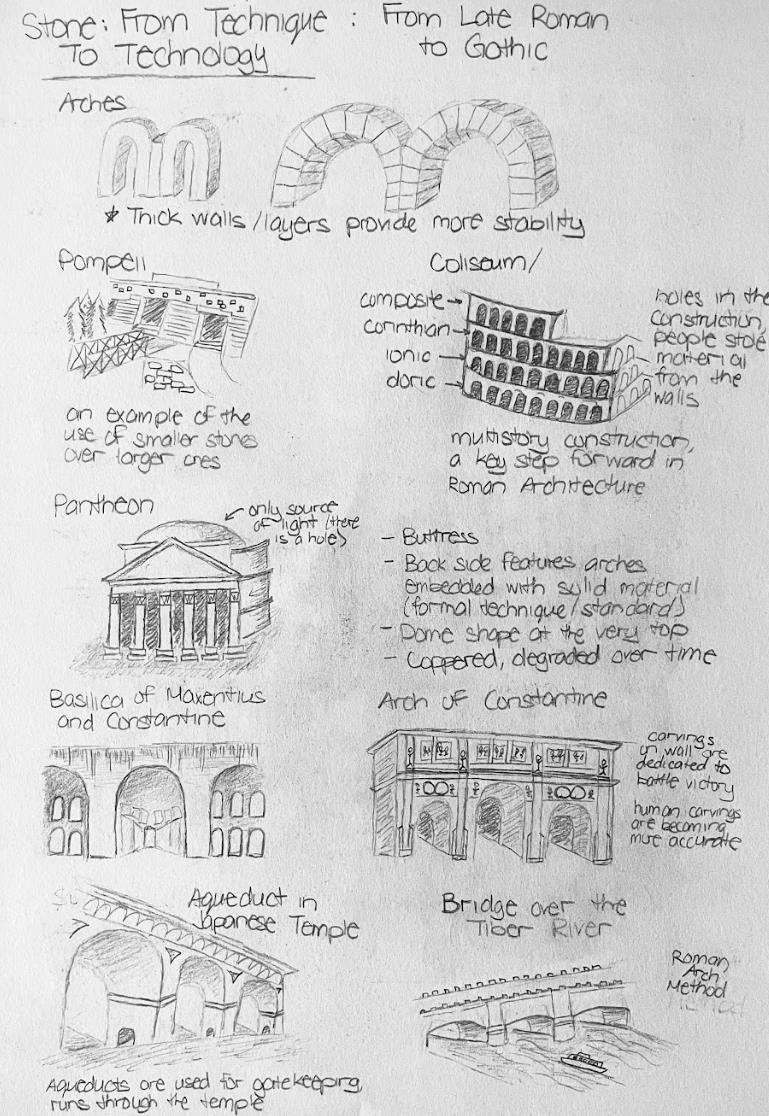 Stone: From Technique : From Late Roman
To Technology to Gothic
Arches
* Thick walls/layers provide more stability
Pompeii
an example of the
use of smaller stones
over larger ones
Coliseum/
composite →
corinthian →
ionic →
doric →
holes in the
construction,
people stole
material
from the
walls
multistory construction,
a key step forward in
Roman Architecture
Pantheon
only source
of light (there
is a hole)
- Buttress
- Back side features arches
embedded with solid material
(formal technique/standard)
- Dome shape at the very top
- Coppered, degraded over time
Basilica of Maxentius
and Constantine
Arch of Constantine
carvings
in wall are
dedicated to
battle victory
human carvings
are becoming
more accurate
Aqueduct in
Japanese Temple
Aqueducts are used for gatekeeping,
runs through the temple
Bridge over the
Tiber River
Roman
Arch
Method